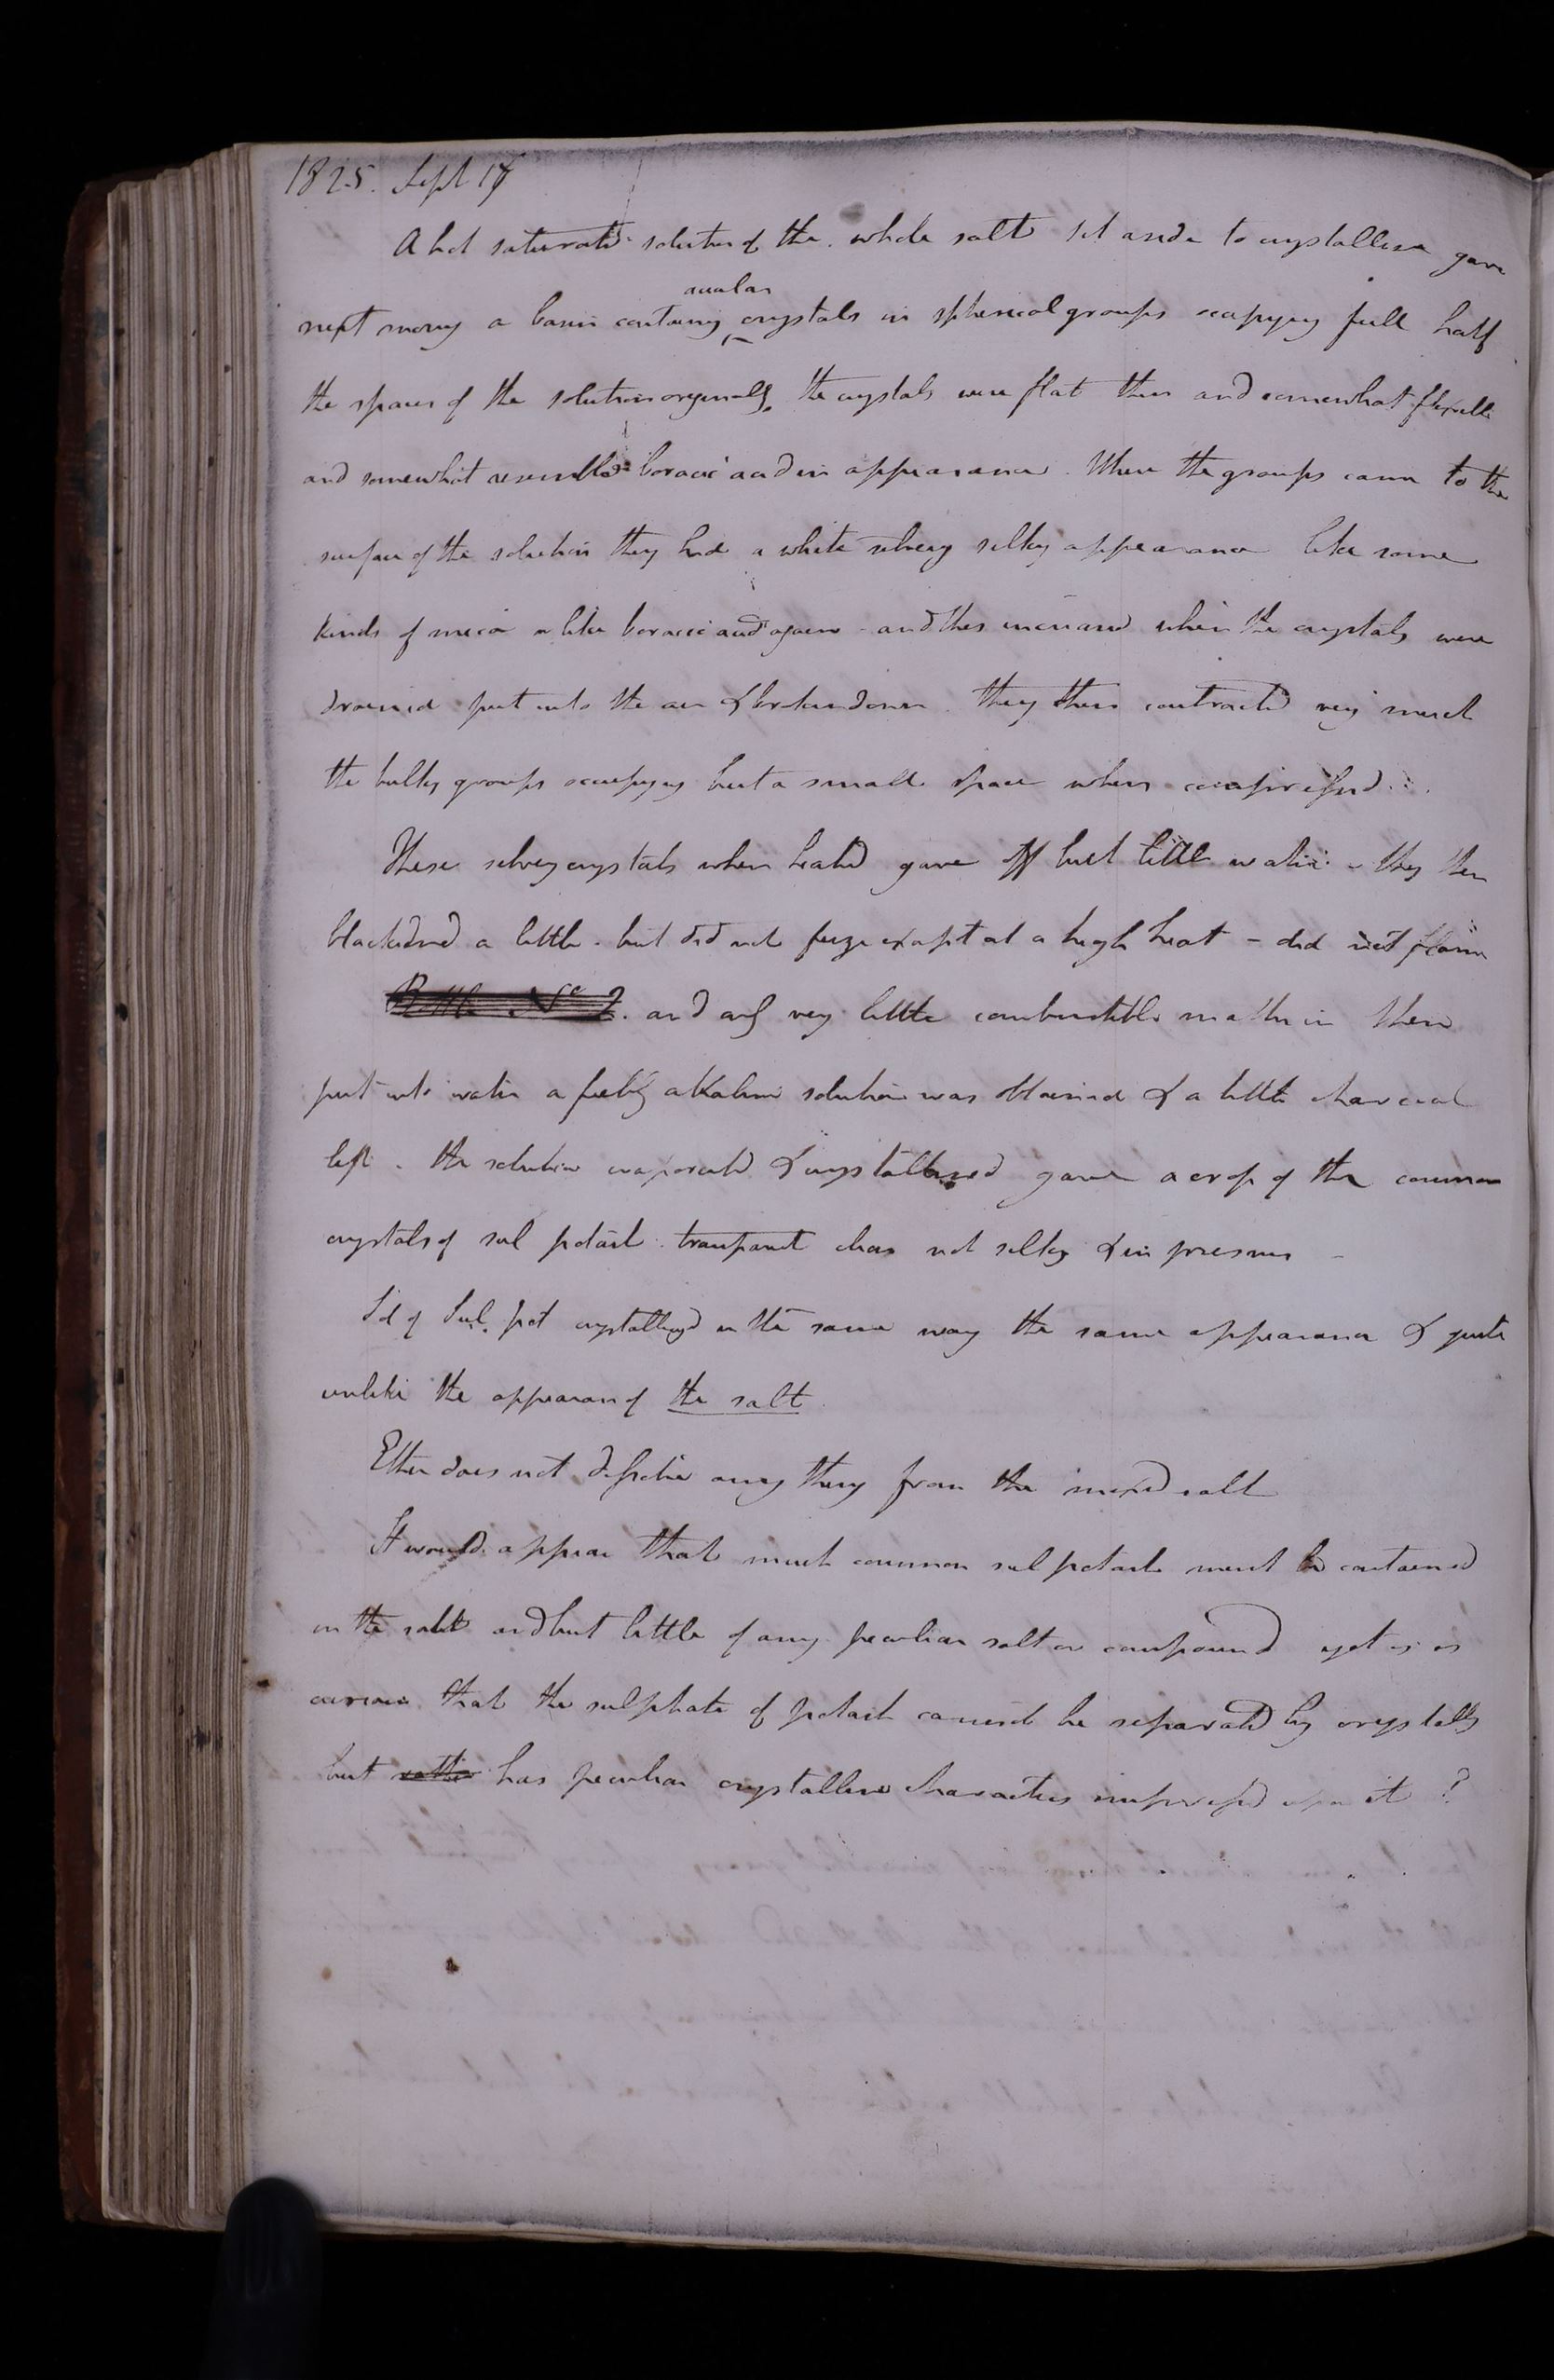 1825. Sept 17
A hot saturated solution of the whole salt set aside to crystallise gave
acicular
next morng a basin containg crystals in spherical groups occupying full half
the spaces of the solution originally. the crystals were flat thin and somewhat flexible
and somewhat resembled boracic acid in appearance. Where the groups came to the
surface of the solution they had a white silvery silky appearance like some
kinds of mica or like boracic acid again - and this increased when the crystals were
drained put into the air & broken down. they then contracted very much
the bulky groups occupying but a small space when compressed.
These silvery crystals when heated gave off but little water - they then
blackened a little - but did not fuze except at a high heat - did not flame
Bottle No 2. and only very little combustible matter in them
put into water a feebly alkaline solution was obtained & a little charcoal
left. the solution evaporated & crystallised gave a crop of the common
crystals of sul potash transparent clear not silky & in prisms -
Sol of Sul. pot crystallized in the same way the same appearance & quite
unlike the appearan of the salt
Ether does not dissolve any thing from the mixed salt
It would appear that much common sul potash must be contained
in the salt and but little of any peculiar salt or compound yet is is
curious that the sulphate of potash cannot be separated by crystally
but rather has peculiar crystalline characters impressed upon it ?